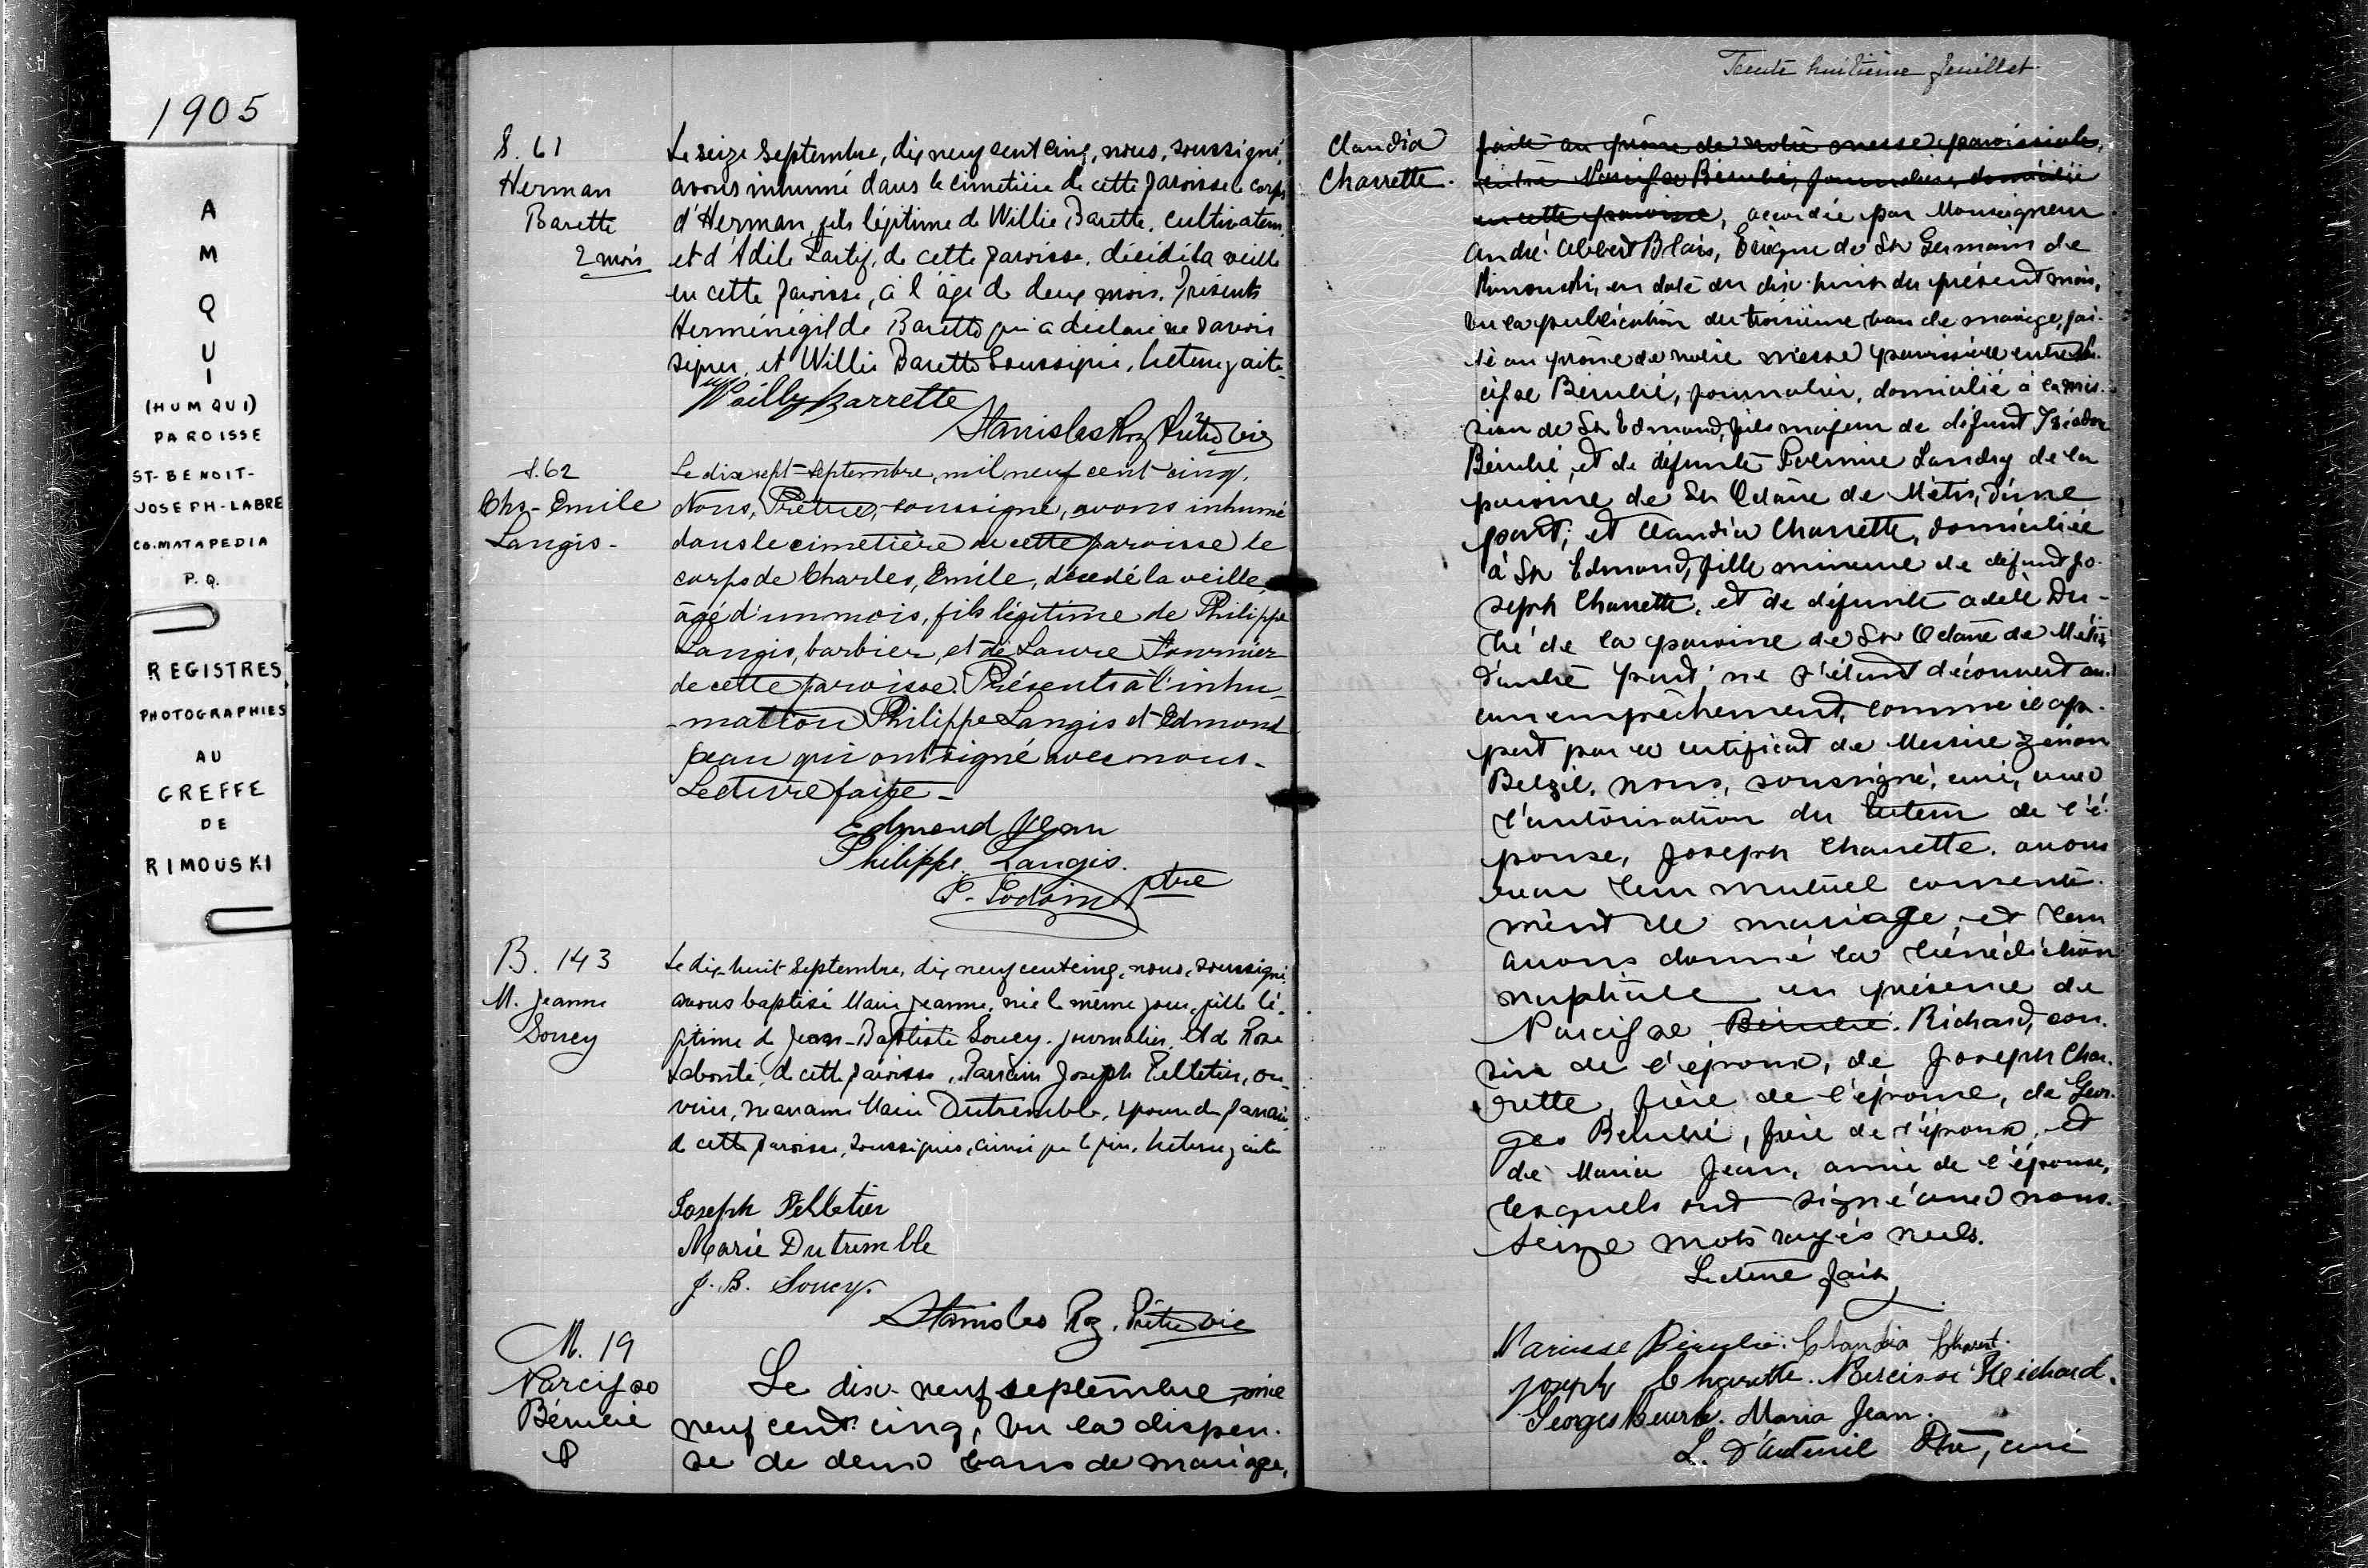 1905
AMQUI
(HUMQUI)
PAROISSE
ST-BENOIT-
JOSEPH-LABRE
CO. MATAPEDIA
P.Q.
REGISTRES
PHOTOGRAPHIES
AU
GREFFE
DE
RIMOUSKI
S. 61
Herman
Barette
2 mois
Le seize Septembre, dix neuf cent cinq, nous, soussigné,
avons inhumé dans le cimetière de cette paroisse le corps
d'Herman, fils légitime de Willie Barette, cultivateur,
et d'Adèle, de cette paroisse, décédé la veille
en cette paroisse, à l'âge de deux mois. Présents
Herménégilde Barette qui a déclaré ne savoir
signer, et Willie Barette Soussigné, lecture faite.
Willy Barrette
Stanislas Roy Ptre Vic
S. 62
Chs-Emile
Langis-
Le dix sept-septembre, mil neuf cent cinq,
Nous, Prêtre, soussigné, avons inhumé
dans le cimetière de cette paroisse le
corps de Charles, Emile, décédé la veille,
âgé d'un mois, fils légitime de Philippe
Langis, barbier, et de Laure Fournier
de cette paroisse. Présents à l'inhu-
-mation Philippe Langis et Edmond
Jean qui ont signé avec nous-
Lecture faite-
Edmond Jean
Philippe Langis.
P. ptre
B. 143
M. Jeanne
Soucy
Le dix-huit Septembre, dix neuf cent cinq, nous, soussigné,
avons baptisé Marie Jeanne, née le même jour, fille lé-
gitime de Jean-Baptiste Soucy, journalier, et de Rose
Labonté, de cette paroisse. Parrain Joseph Pelletier, ou-
vrier, marraine Marie Dutremble, épouse du parrain,
de cette paroisse, soussignés, ainsi que le père. Lecture faite
Joseph Pelletier
Marie Dutremble
J. B. Soucy.
Stanislas Roy, Prêtre Vic
M. 19
Narcisse
Bérubé
&
Le dix-neuf septembre mil
neuf cent cinq, vu la dispen-
se de deux bans de mariage,
Trente huitième feuillet
Claudia
Charrette.
faite au prône de notre messe paroissiale,
entre Narcisse Bérubé, journalier, domicilié
en cette paroisse, accordée par Monseigneur
André Albert Blais, Evêque de St Germain de
Rimouski, en date du dix-huit du présent mois,
vu la publication du troisième ban de mariage, fai-
te au prône de notre messe paroissiale entre Nar-
cisse Bérubé, journalier, domicilié à la mis-
sion de St Edmond, fils majeur de défunt Isidore
Bérubé, et de défunte Landry de la
paroisse de St Octave de Métis, d'une
part; et Claudia Charrette, domiciliée
à St Edmond, fille mineure de défunt Jo-
seph Charrette, et de défunte Adèle Du-
bé de la paroisse de St Octave de Métis,
d'autre part; ne s'étant découvert au-
cun empêchement, comme il ap-
pert par le certificat de Messire Zénon
Belzil, nous, soussigné, curé, avec
l'autorisation du tuteur de l'é-
pouse, Joseph Charrette, avons
reçu leur mutuel consente-
ment de mariage, et leur
avons donné la bénédiction
nuptiale en présence de
Narcisse Bérubé. Richard, cou-
sin de l'époux, de Joseph Char-
rette, frère de l'épouse, de Geor-
ges Bérubé, frère de l'époux, et
de Maria Jean, amie de l'épouse,
lesquels ont signé avec nous.
Seize mots rayés nuls.
Lecture faite
Narcisse Bérubé. Claudia Charet.
Joseph Charette. Narcisse Richard.
Georges Beurbé. Maria Jean.
L. D'Auteuil Ptre, curé